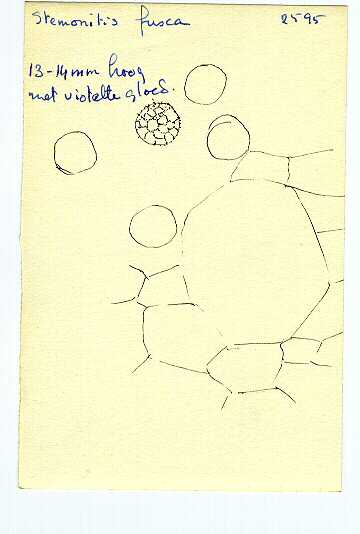 Stemonitis fusca 2595
13-14mm hoog
met violette gloed.